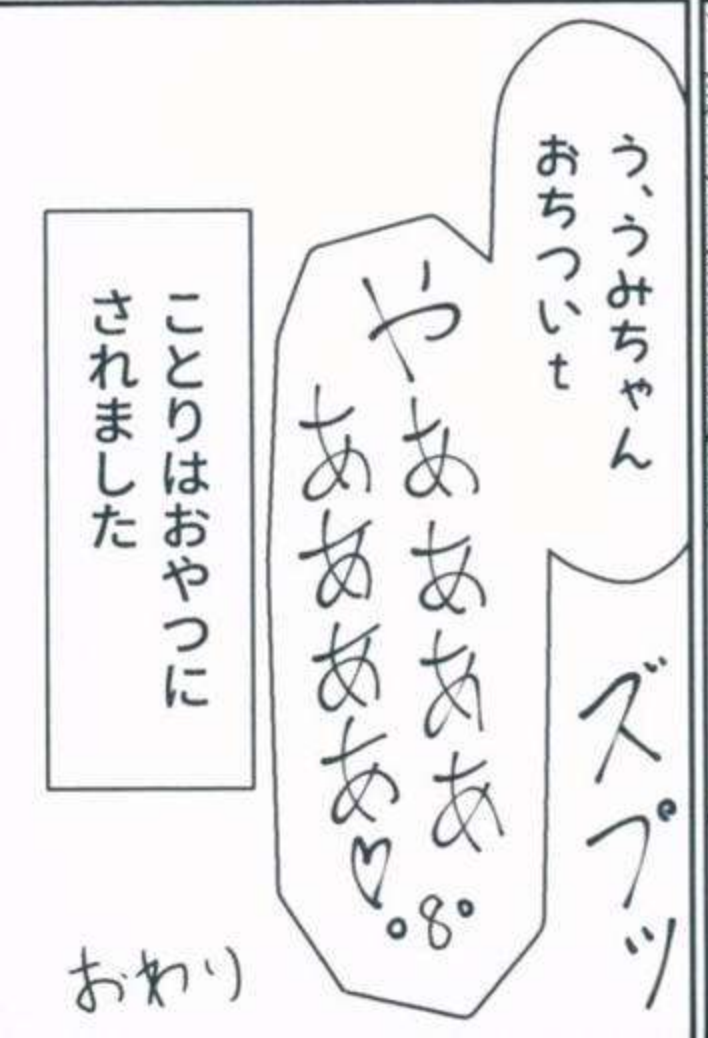 う、うみちゃん
おちついt
ズプッ
やああああ
ああああ♡
ことりはおやつに
されました
おわり